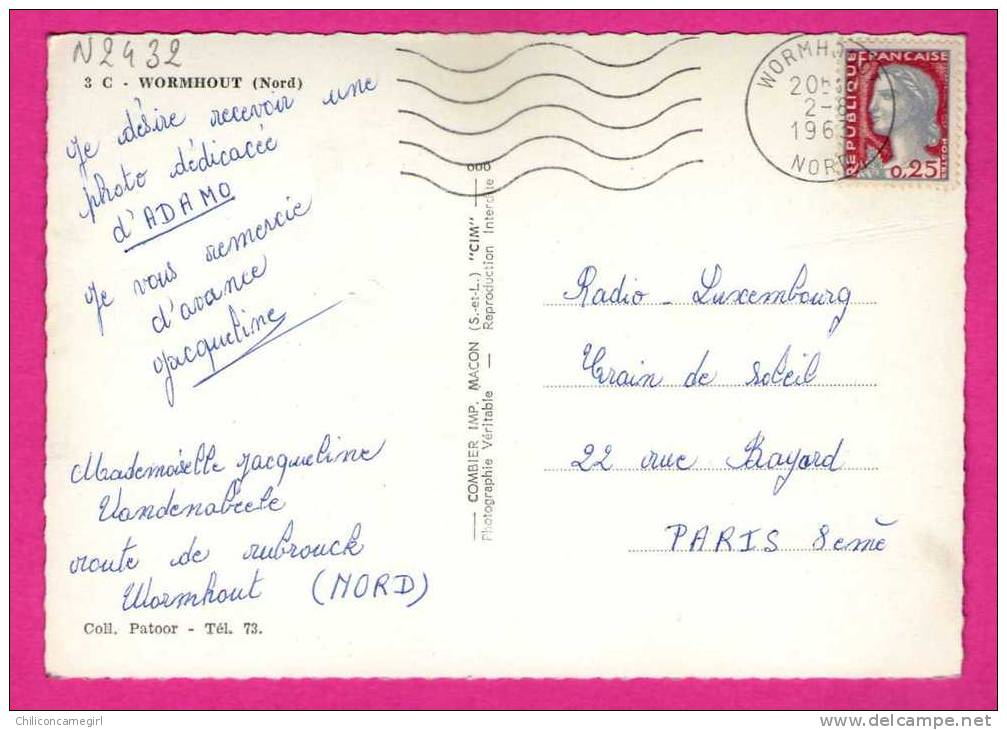 N2432
3 C - WORMHOUT (Nord)
Je désire recevoir une
photo dédicacée
d'ADAMO
Je vous remercie
d'avance
Jacqueline
Mademoiselle Jacqueline
Vandenabeele
route de rubrouck
Wormhout (NORD)
Coll. Patoor - Tél. 73.
COMBIER IMP. MACON (S.-et-L.) "CIM"
Photographie Véritable — Reproduction Interdite
WORMH
20H
2-
196
NORD
REPUBLIQUE FRANCAISE
0,25
POSTES
Radio - Luxembourg
Train de Soleil
22 rue Bayard
PARIS 8emè
Chiliconcamegirl
www.delcampe.net